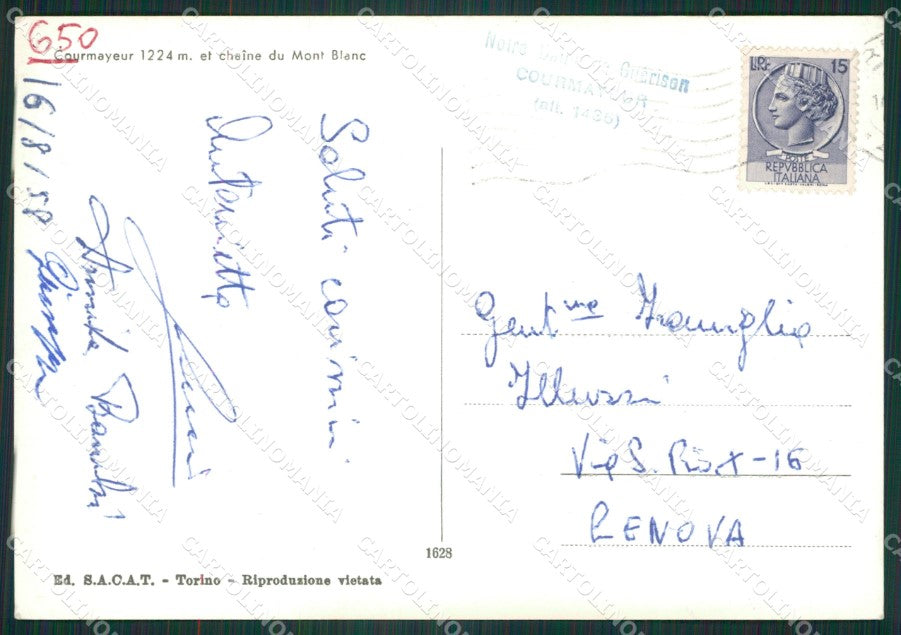 650
Courmayeur 1224 m. et chaîne du Mont Blanc
16/8/58
Saluti carissimi
Antonietta
Notre Dame de Guérison
COURMAYEUR
(alt. 1436)
LIRE 15
POSTE
REPVBBLICA
ITALIANA
Gent.me Famiglia
Illuzzi
Via S. Pio X-16
GENOVA
1628
Ed. S.A.C.A.T. - Torino - Riproduzione vietata
CARTOLINOMANIA